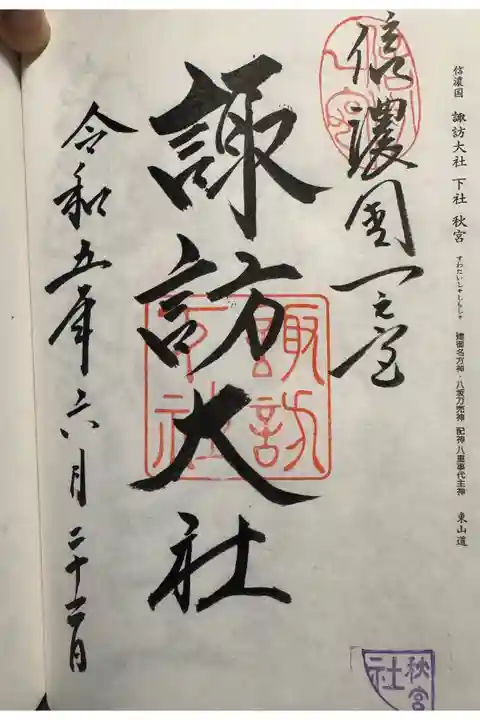 信濃国 諏訪大社 下社 秋宮 すわたいしゃしもしゃ 建御名方神・八坂刀売神 配神 八重事代主神 東山道
信濃國一之宮
諏訪大社
令和五年六月二十二日
諏訪
大社
秋宮
社